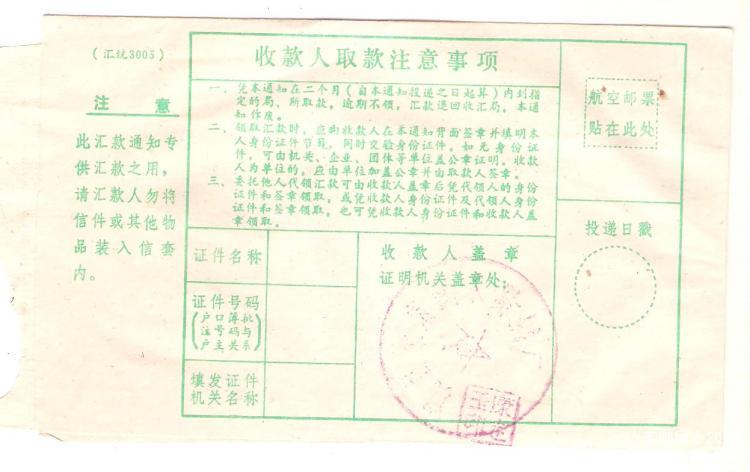 (汇统3005)
注 意
此汇款通知专
供汇款之用，
请汇款人勿将
信件或其他物
品装入信套
内。
收款人取款注意事项
一、凭本通知在二个月（自本通知投递之日起算）内到指
定的局、所取款。逾期不领，汇款退回收汇局，本通
知作废。
二、领取汇款时，应询收款人在本通知背面签章并填明本
人身份证件节目，同时交验身份证件。如无身份证
件，可由机关、企业、团体等单位盖公章证明。收款
人为单位的，应由单位加盖公章并由取款人签章。
三、委托他人代领汇款可由收款人盖章后凭代领人的身份
证件和签章领取，或凭收款人身份证件及代领人身份
证件和签章领取，也可凭收款人身份证件和收款人盖
章领取。
证件名称
证件号码
(户口簿批
注号码与
户主关系)
填发证件
机关名称
收款人盖章
证明机关盖章处：
航空邮票
贴在此处
投递日戳